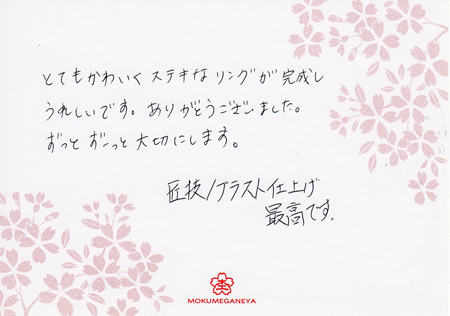 とてもかわいくステキなリングが完成し
うれしいです。ありがとうございました。
ずっとずーっと大切にします。
匠技/ブラスト仕上げ
最高です.
杢
MOKUMEGANEYA